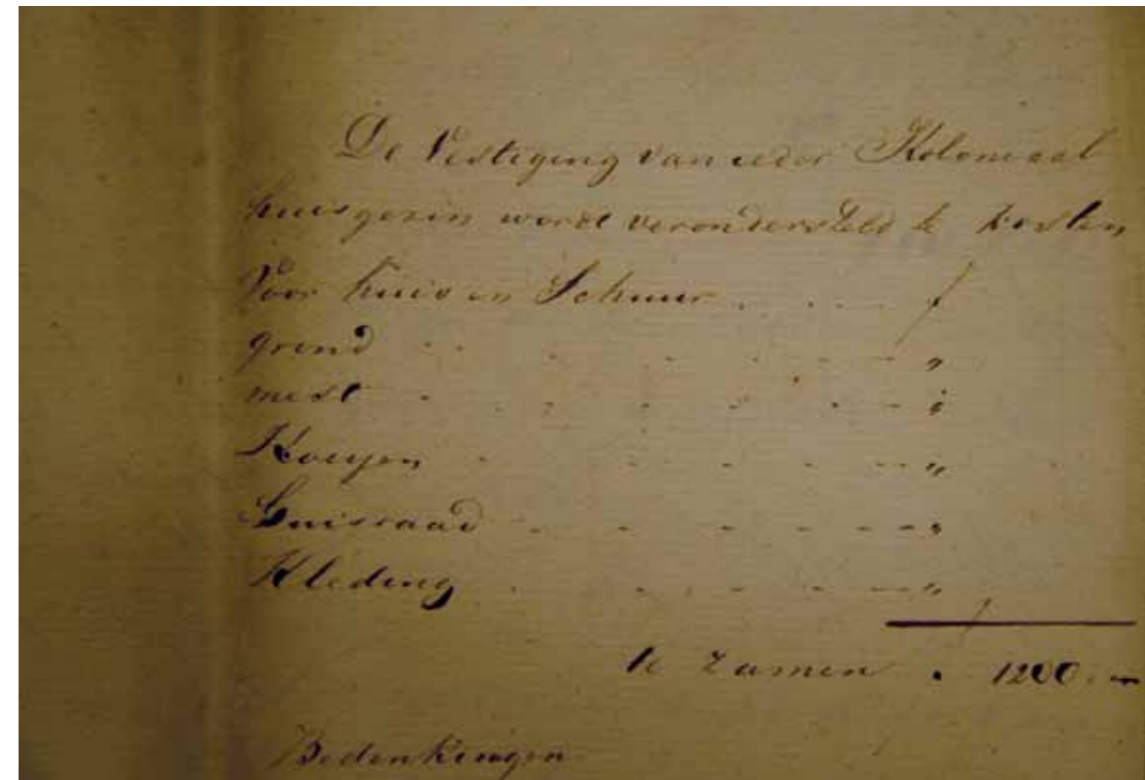 De Vestiging van ieder Koloniaal
huisgezin wordt verondersteld te kosten
Voor huis en Schuur . . . . . f
grond . . . . . . . "
mest . . . . . . . "
Koeijen . . . . . . "
Huisraad . . . . . . "
Kleding . . . . . . "
te zamen . 1200.—
Bedenkingen